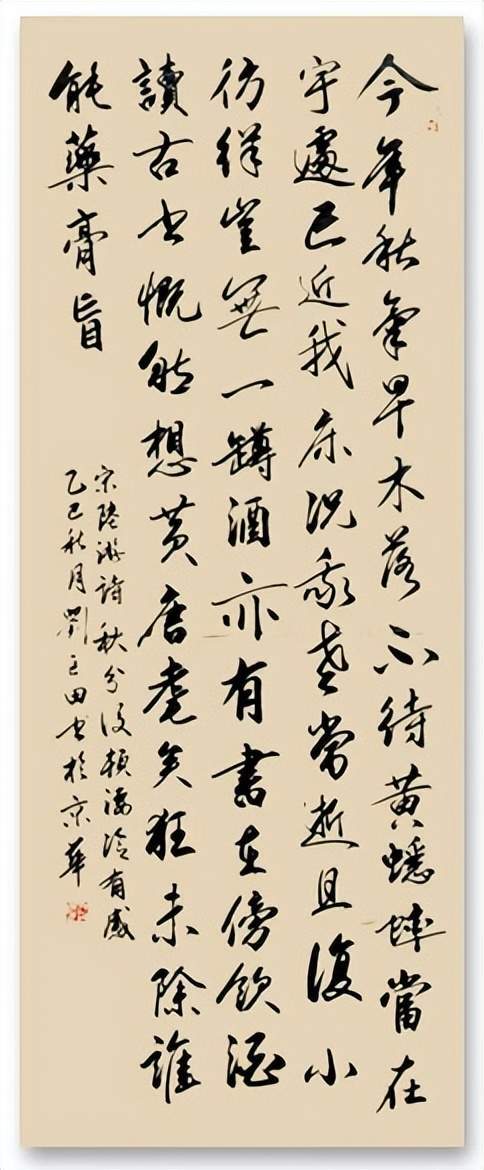 今年秋氣早木落不待黃蟋蟀當在
宇遽已近我床況我老當逝且復小
彷徉豈無一罇酒亦有書在傍飲酒
讀古書慨然想黃唐耄矣狂未除誰
能藥膏肓
宋陸游詩秋分後頓凄冷有感
乙巳秋月劉田書於京華